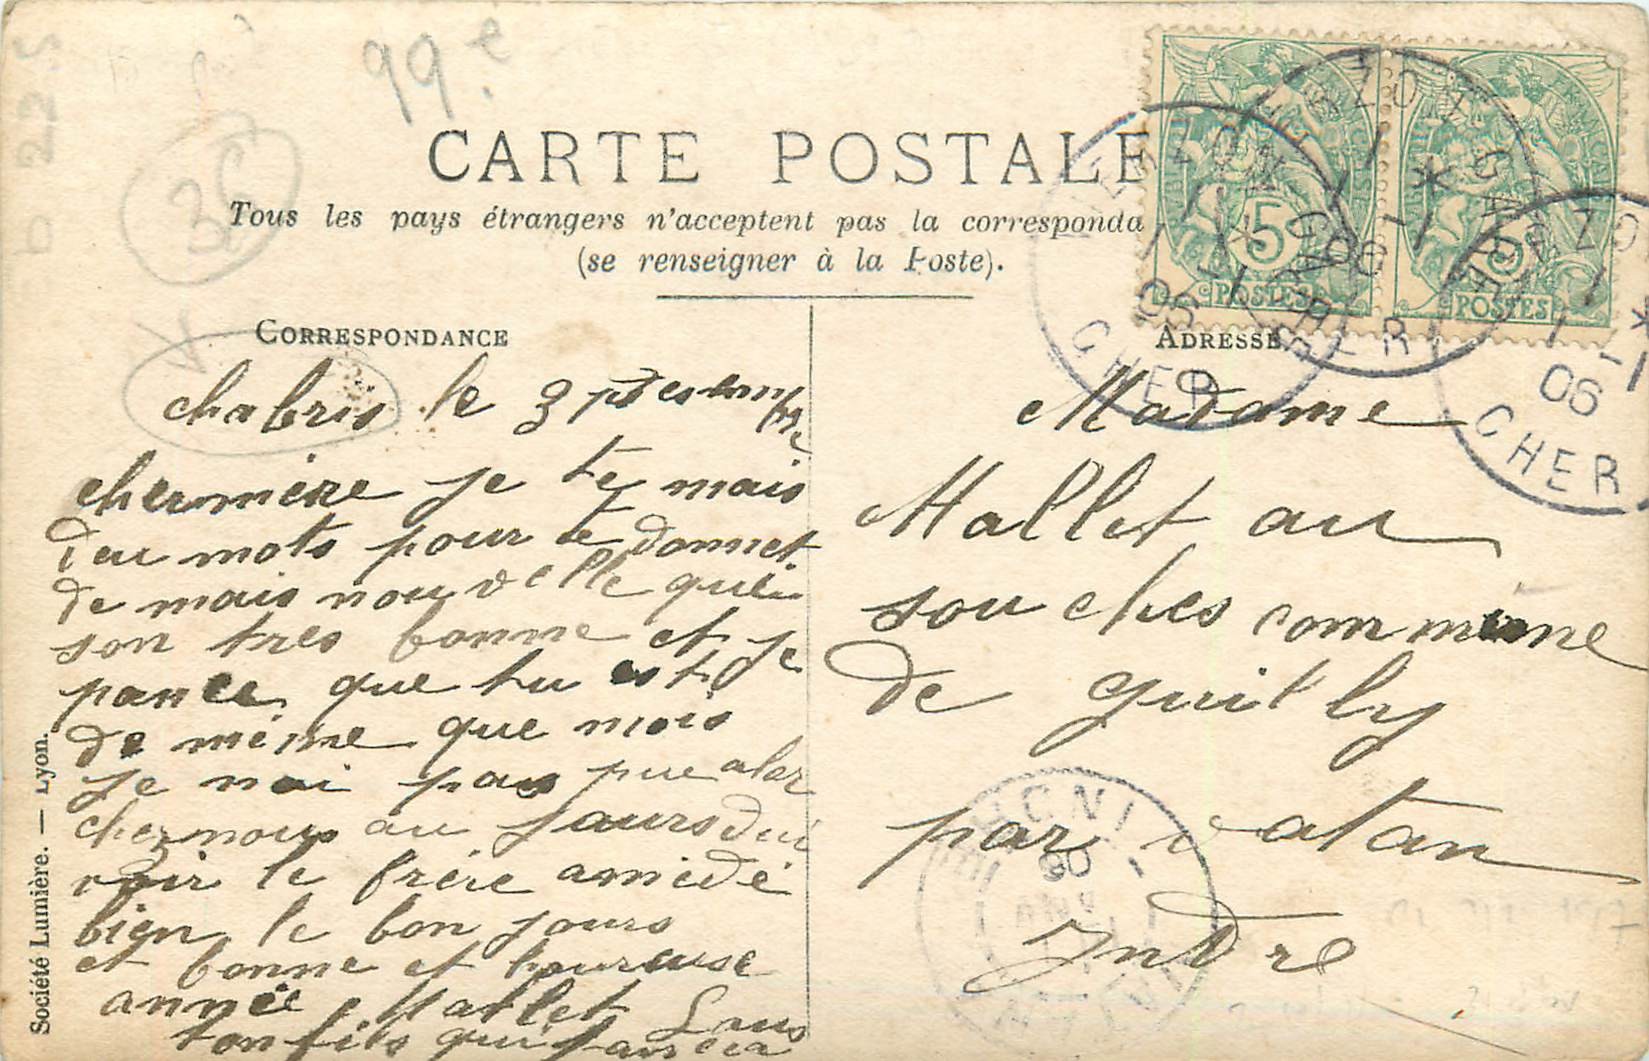 99e
36
CARTE POSTALE
Tous les pays étrangers n'acceptent pas la corresponda
(se renseigner à la Poste).
CORRESPONDANCE
chabris le 3
chermère je te mais
deu mots pour te donnet
de mais nouvelle quei
son tres bonne et je
pance que tu est
de même que mois
je nai pas pue aler
cher nous au joursdui
voir le frère amédé
bien le bon jours
et bonne et houreuse
année Mallet Louis
ton fils qui
ADRESSE
Madame
Mallet au
souches commune
de guilly
par vatan
Indre
5
POSTES
POSTES
MENNETOU
GARE
1 -1
06
CHER
ZO
1 -1
06
CHER
INDRE
06
Société Lumière. — Lyon.